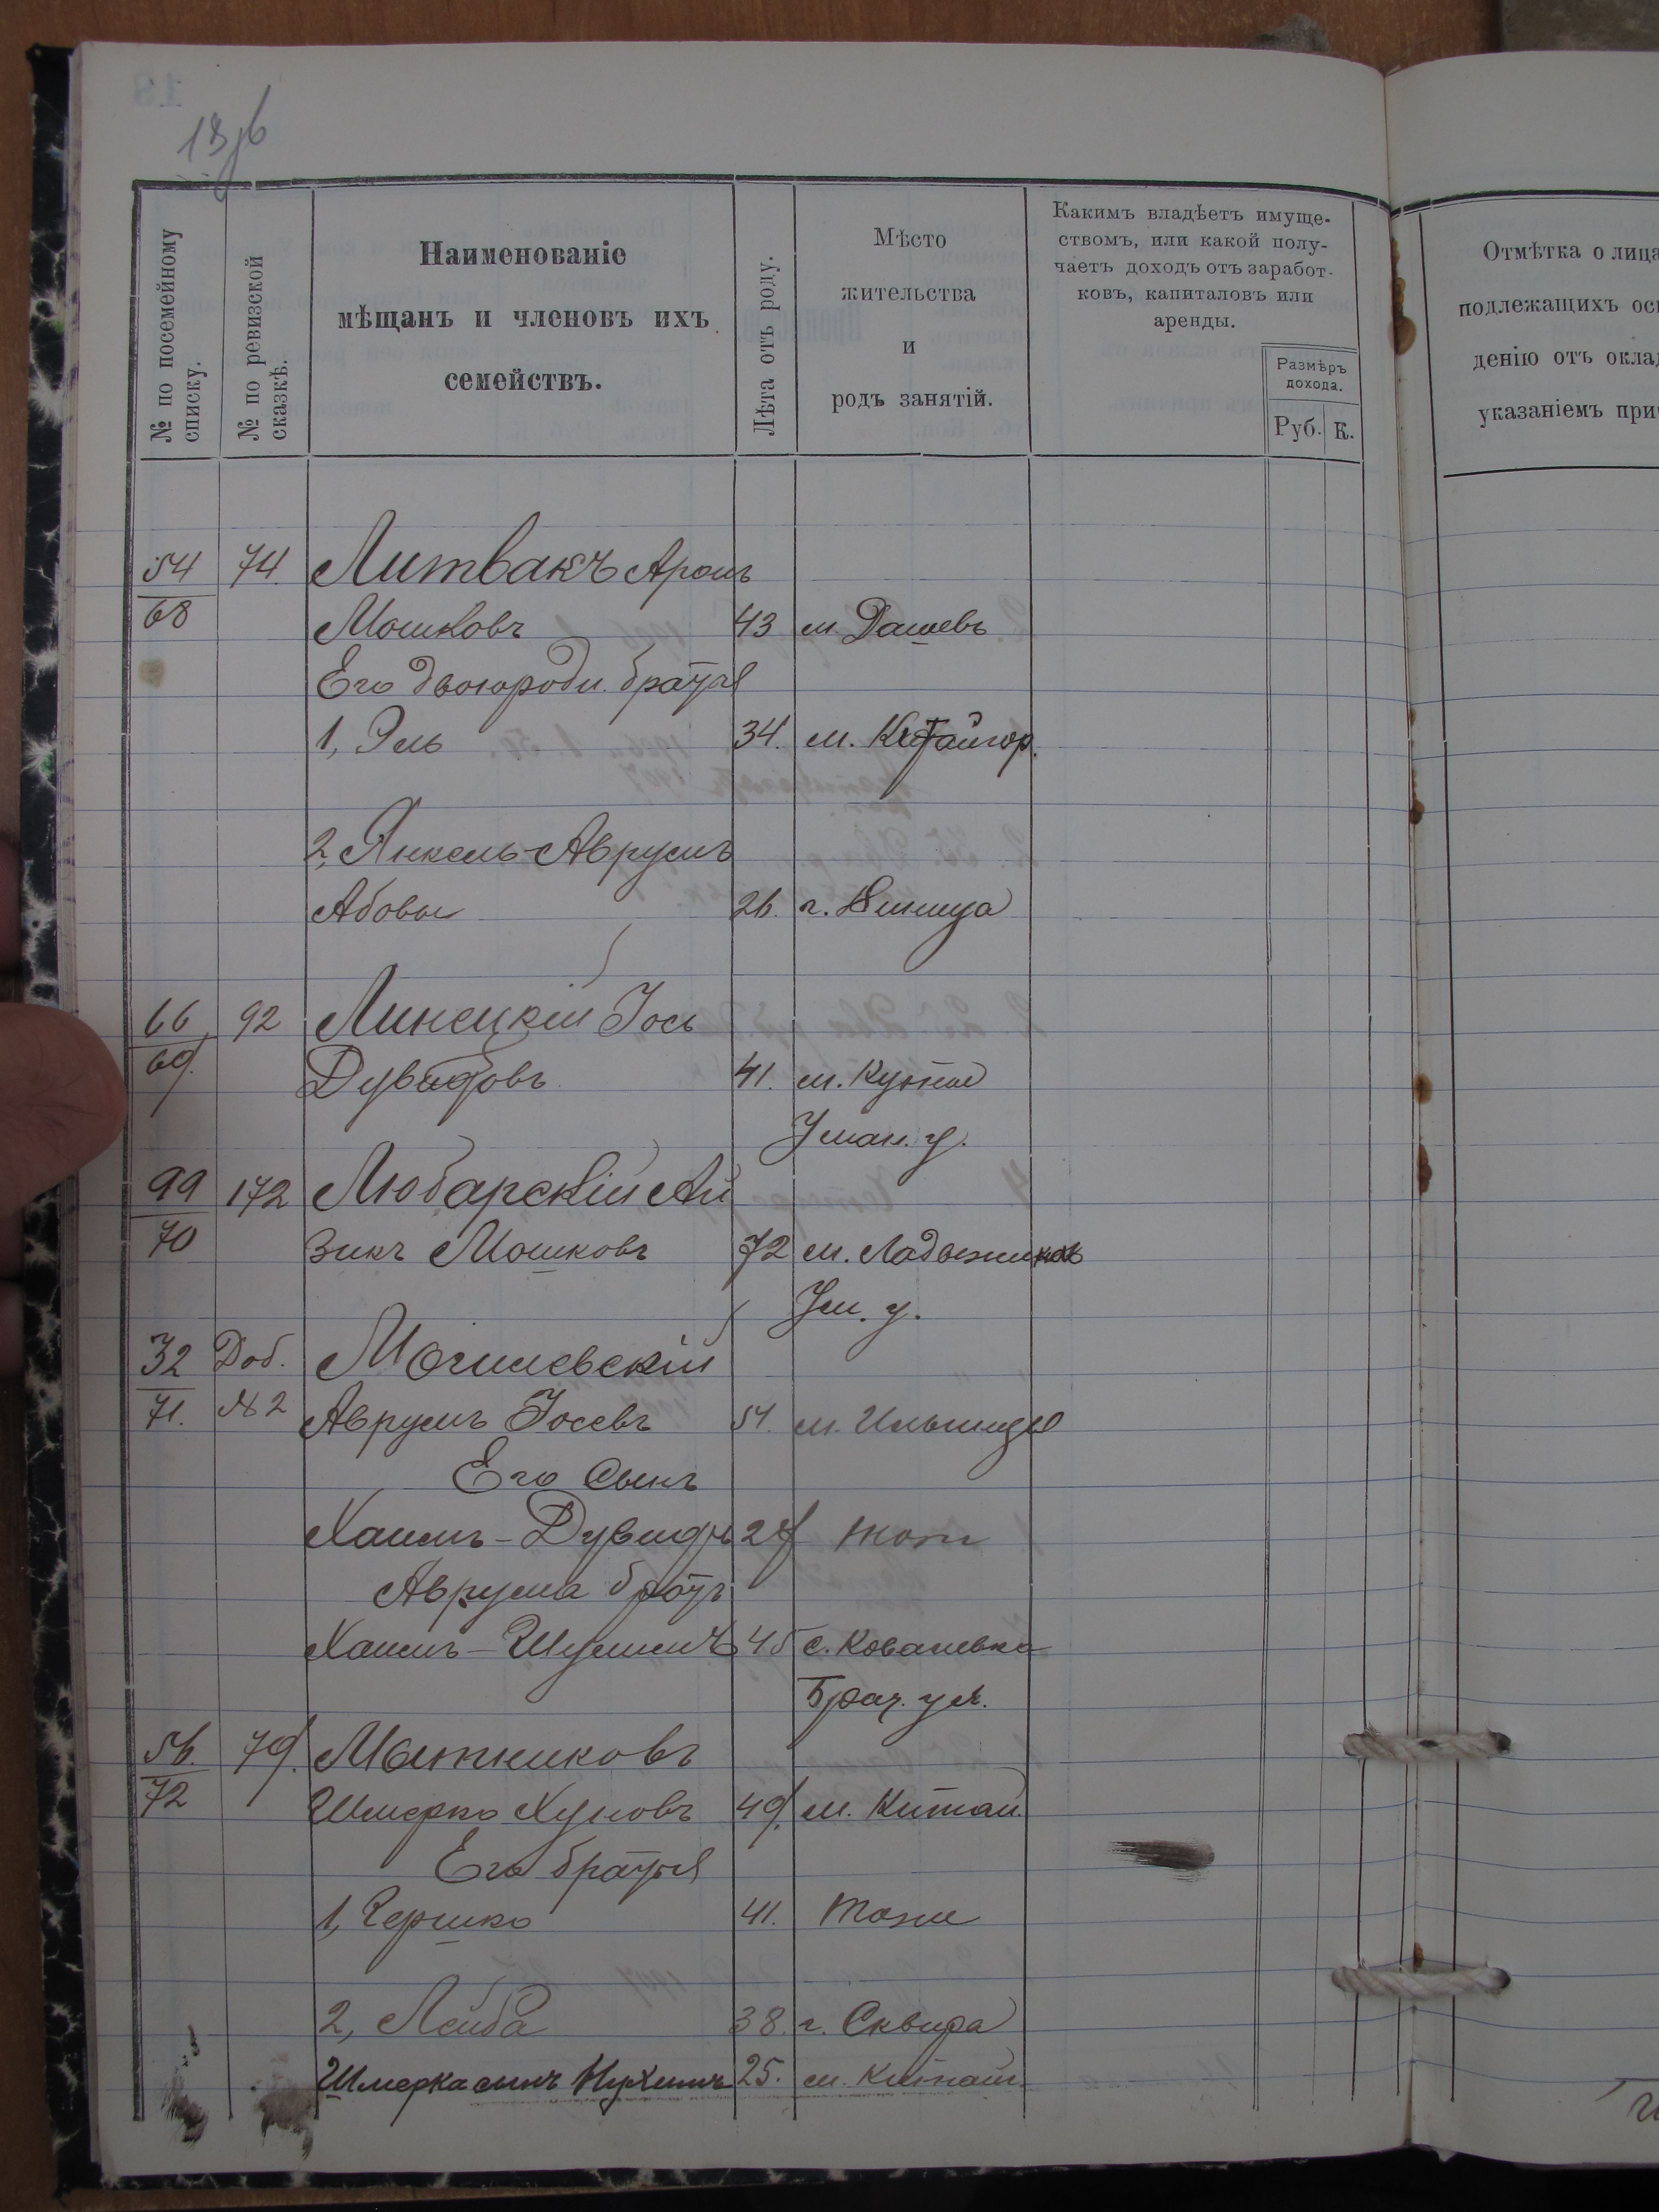 18об
№ по посемейному списку.
№ по ревизской сказкѣ.
Наименованіе
мѣщанъ и членовъ ихъ
семействъ.
Лѣта отъ роду.
Мѣсто
жительства
и
родъ занятій.
Какимъ владѣетъ имуще-
ствомъ, или какой полу-
чаетъ доходъ отъ заработ-
ковъ, капиталовъ или
аренды.
Размѣръ
дохода.
Руб. К.
Отмѣтка о лица
подлежащихъ осв
денію отъ оклад
указаніемъ при
54 74 Литвакъ Аронъ
68 Мошковъ 43 м. Дашевъ
Его двоюродн. братья
1, Эль 34. м. Китайгор.
2, Янкель-Аврумъ
Абовы 26. г. Винница
66 92 Линецкій Іось
69. Дувидовъ 41. м. Кутное
Уман. у.
99 172 Любарскій Ай
70 зикъ Мошковъ 72 м. Ладыжинка
Ум. у.
32 Доб. Могилевскій
71. №2 Аврумъ Іосевъ 54. м. Ильинцы
Его сынъ
Хаимъ-Дувидъ 29 тож
Аврума братъ
Хаимъ-Шулимъ 45 с. Ковалевка
Брац. уѣ.
56. 79. Мотниковъ
72 Шмерко Хуновъ 49. м. Китай
Его братья
1, Гершко 41. тоже
2, Лейба 38. г. Сквира
Шмерка сынъ Нухимъ 25. м. Китай.